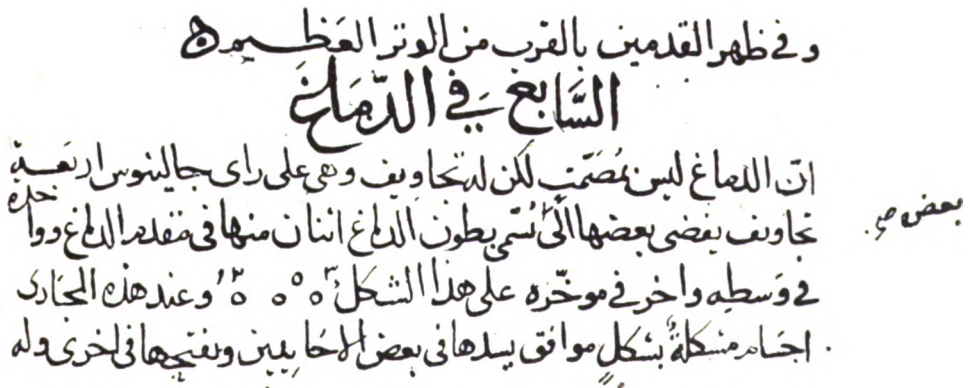 وفي ظهر القدمين بالقرب من الوتر العظيم ه
السَّابع في الدّماغ
انّ الدماغ ليس بمُصَمَّتٍ لكن له تجاويف وهي على راى جالينوس اربعَة
تجاويف يفضى بعضها الَى تُسمى بطون الدماغ اثنان منها في مقدم الدماغ وواحدة
بعض صح
في وَسطِه واخر في موخّره على هذا الشكل وعند هذه المجَارى
اجسَام مشكلةٌ بشكلٍ موافق يسدها في بعض الاحايين ويفتحها في اخرى وله